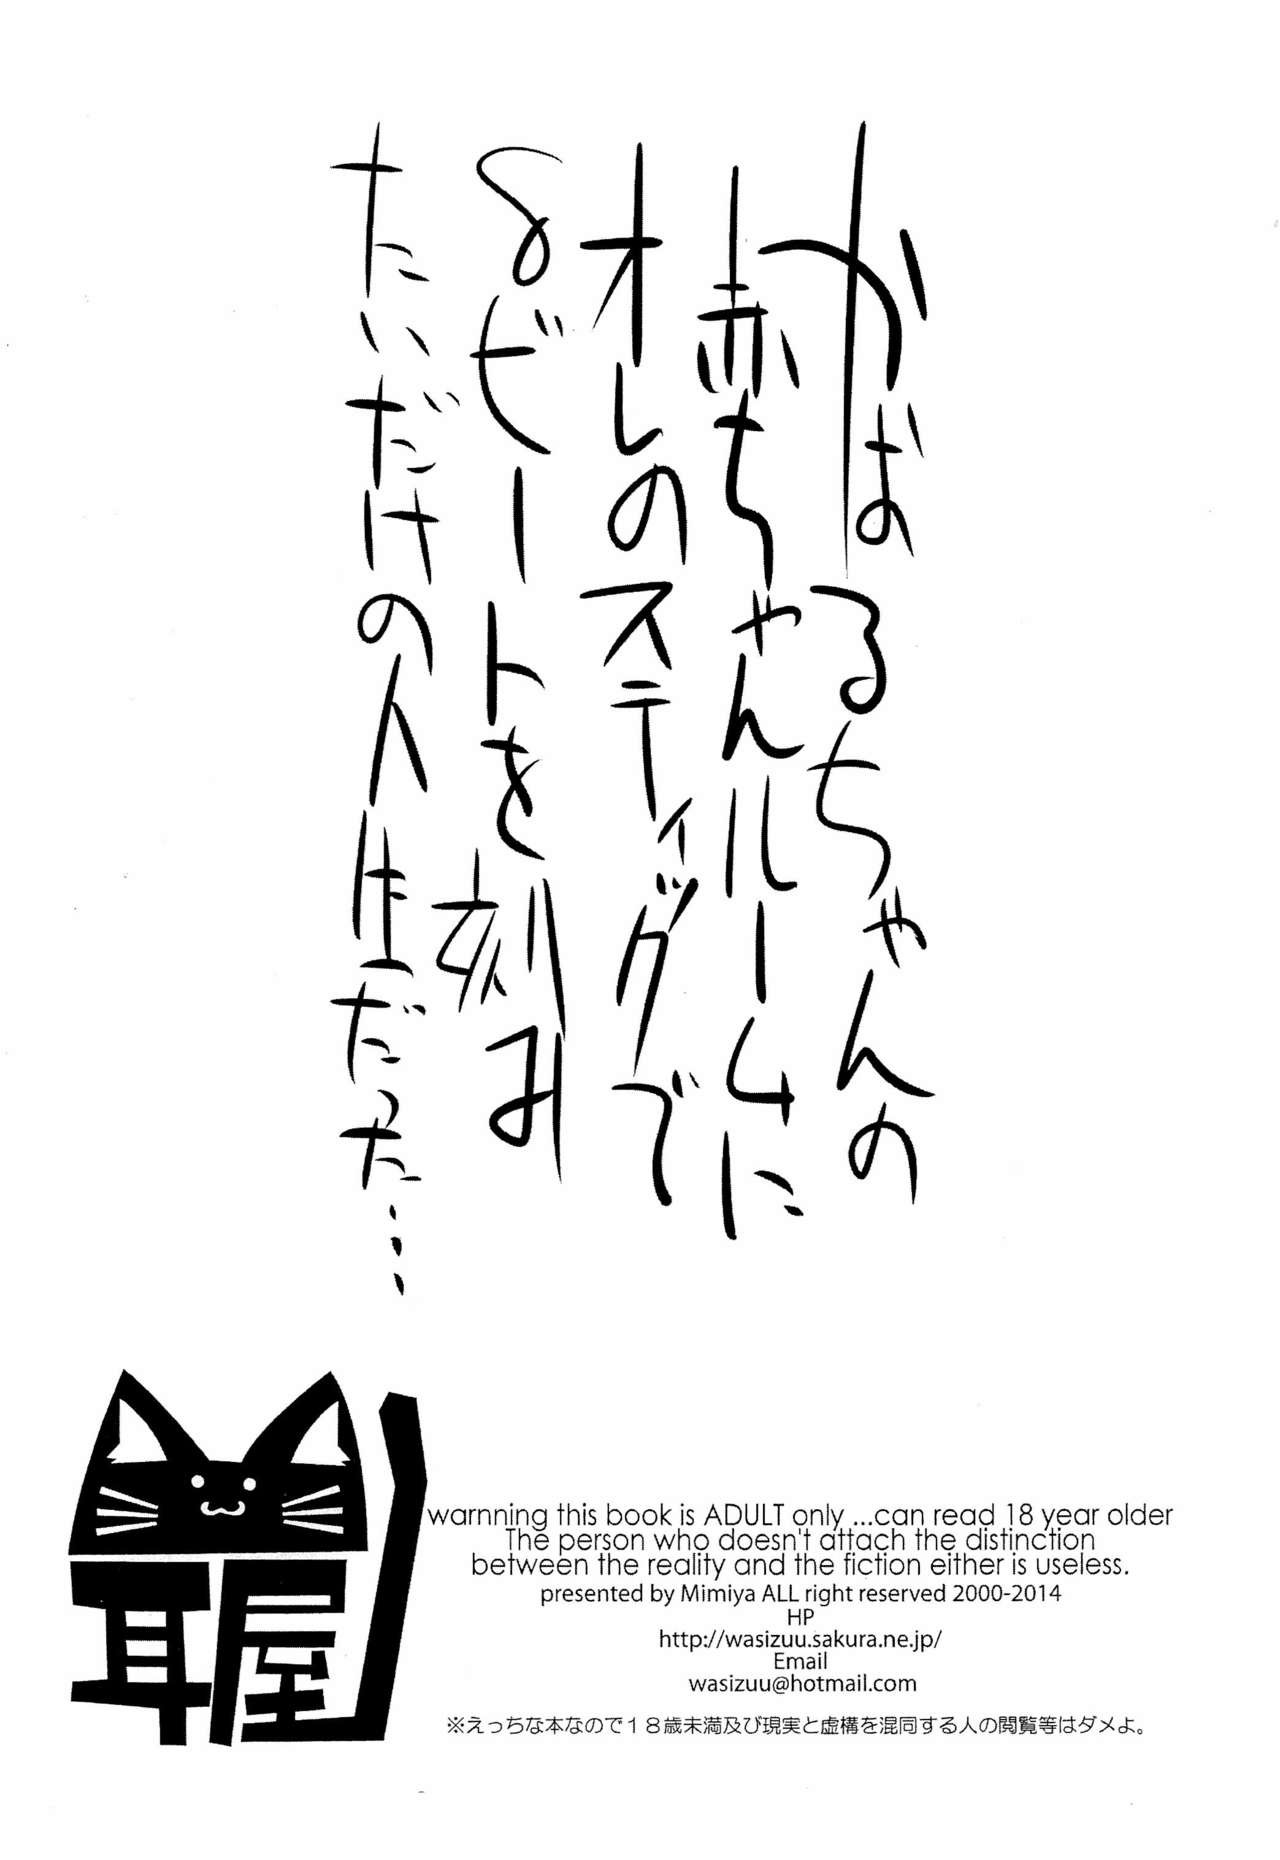 かばるちゃんの
赤ちゃんルームに
オレのスティックで
8ビートを刻み
たいだけの人生だった…
耳屋
warnning this book is ADULT only ...can read 18 year older
The person who doesn't attach the distinction
between the reality and the fiction either is useless.
presented by Mimiya ALL right reserved 2000-2014
HP
http://wasizuu.sakura.ne.jp/
Email
wasizuu@hotmail.com
※えっちな本なので１８歳未満及び現実と虚構を混同する人の閲覧等はダメよ。